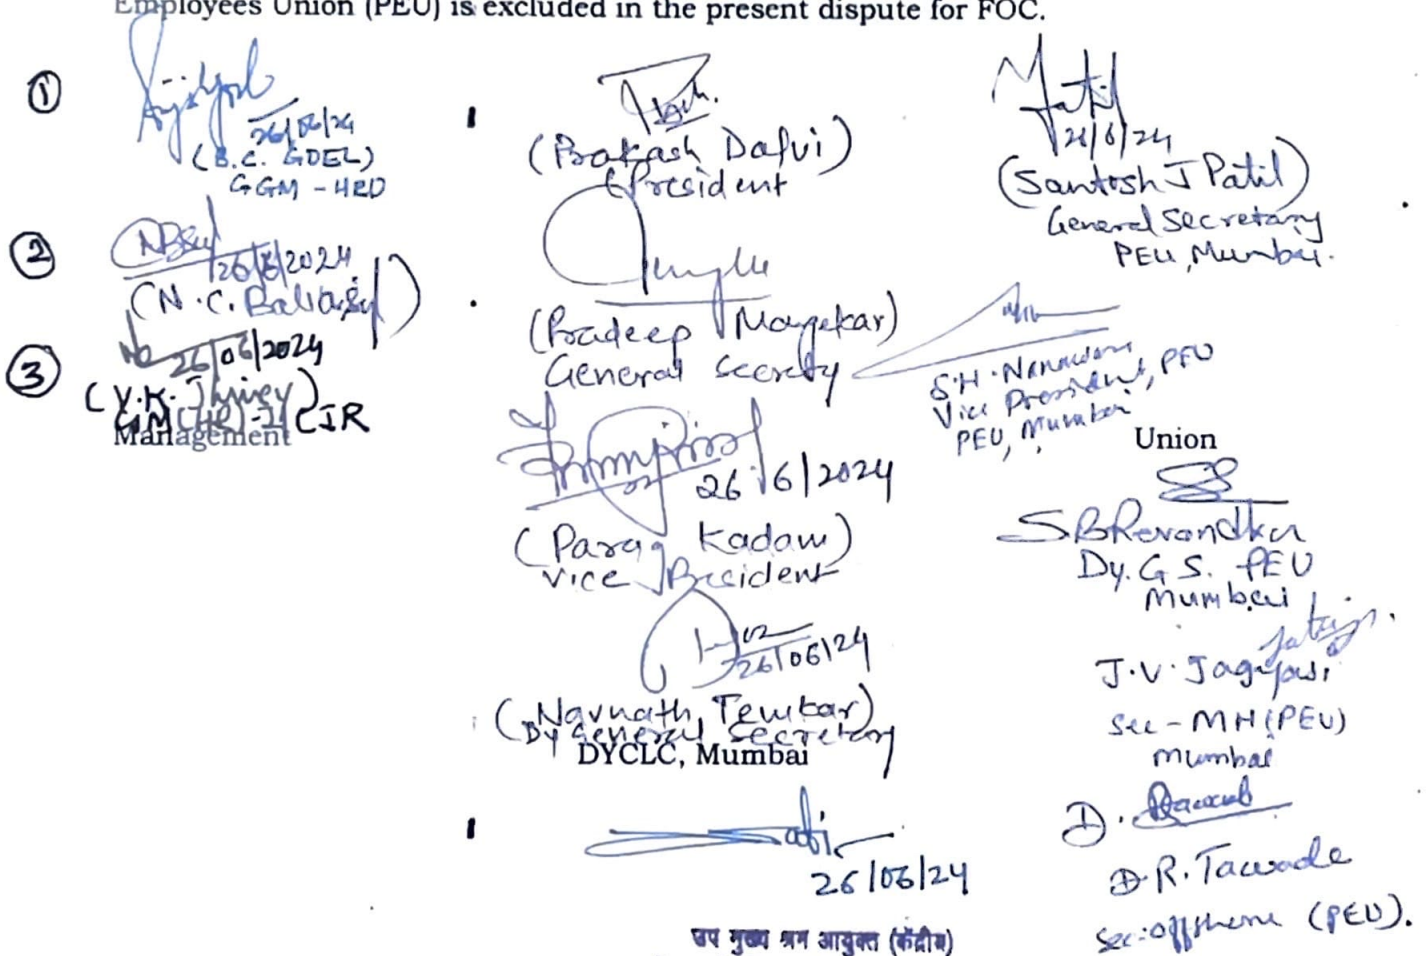 Employees Union (PEU) is excluded in the present dispute for FOC.
①
26/06/24
(B.C. GOEL)
GGM - HRD
②
26/6/2024
(N.C.
③
26/06/2024
(V.K.
GM(HR)-I/C IR
Management
(Prakash Dalvi)
President
(Pradeep Mayekar)
General Secrety
26/6/2024
(Parag Kadam)
Vice President
26/06/24
(Navnath Temkar)
Dy General Secretary
DYCLC, Mumbai
26/06/24
उप मुख्य श्रम आयुक्त (केंद्रीय)
Patil
26/6/24
(Santosh J Patil)
General Secretary
PEU, Mumbai.
S.H.
Vice President, PEU
PEU, Mumbai
Union
S B Revandkar
Dy. G S. PEU
Mumbai
J.V.
Sec - MH (PEU)
Mumbai
D.
D.R. Tawade
Sec: offshore (PEU).